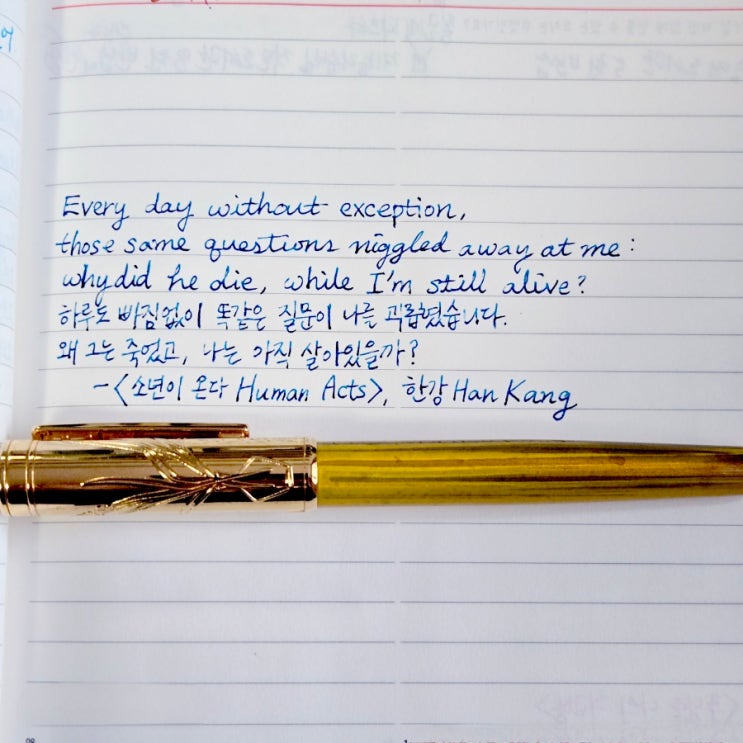 Every day without exception,
those same questions niggled away at me:
why did he die, while I'm still alive?
하루도 빠짐없이 똑같은 질문이 나를 괴롭혔습니다.
왜 그는 죽었고, 나는 아직 살아있을까?
-<소년이 온다 Human Acts>, 한강 Han Kang
98